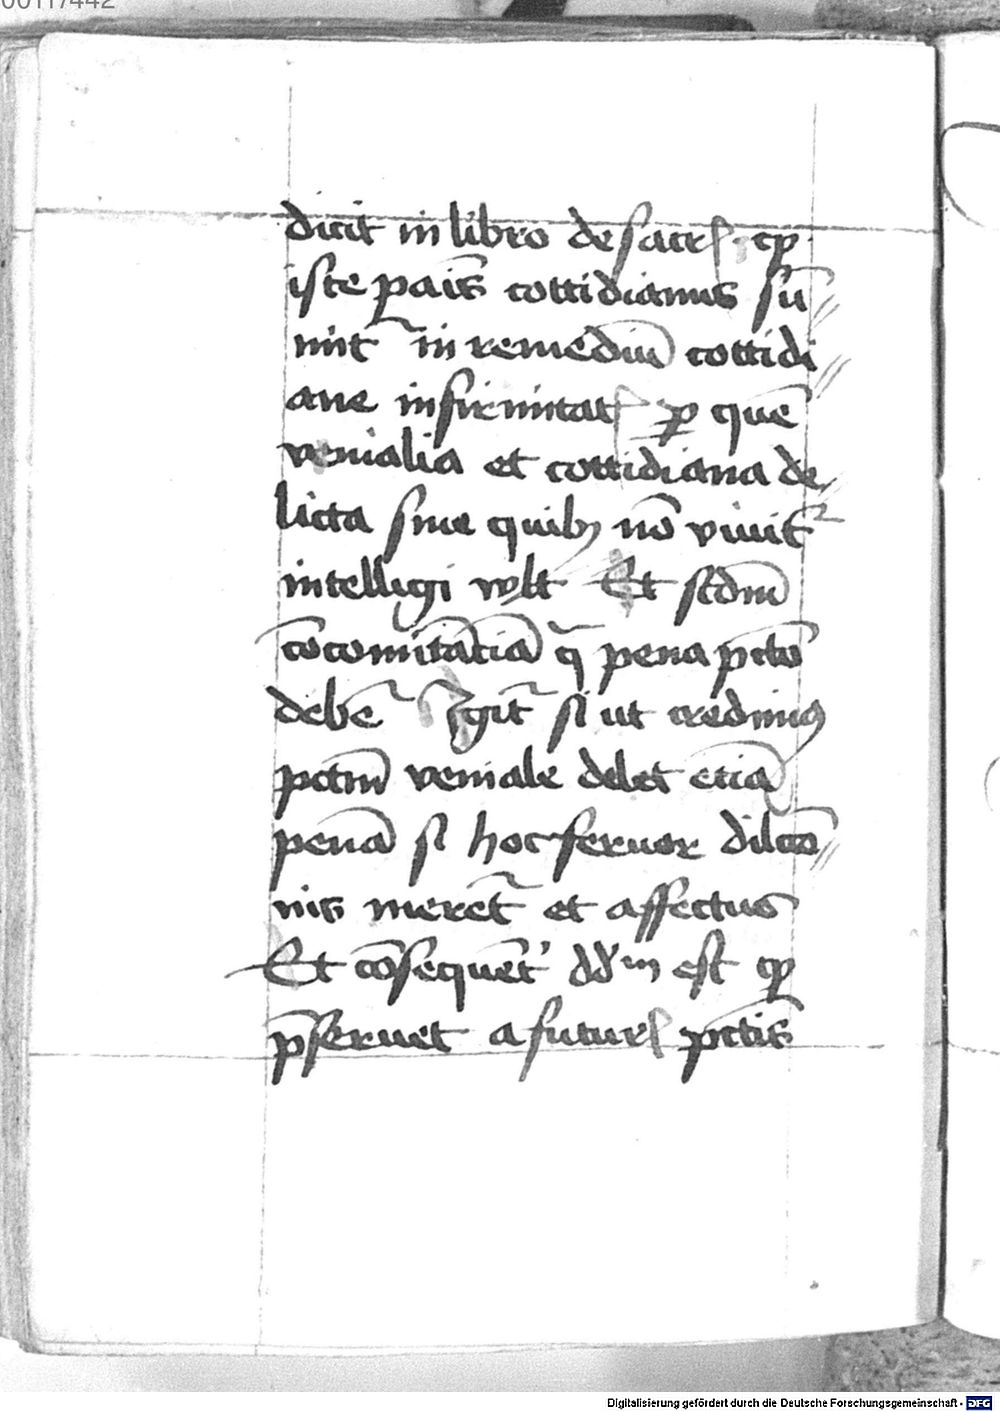 00117442
dicit in libro de sacrꝭ ꝙ
iste pāis cottidianus sū
mit᷑ in remediū cottidi
ane infirmitatꝭ ꝑ quē
venialia et cottidiana de
licta sine quibꝫ nō viuit᷑
intelligi wlt Et scdm̄
cōcomitāciā q̄ pena pctō
debet᷑ Igit᷑ si ut credimꝰ
pctm̄ veniale delet etiā
penā si hoc feruor dilcō
nis meret᷑ et affectus
Et cōsequēt᷑ dd'm est ꝙ
p̄seruet a futurꝭ pctis
Digitalisierung gefördert durch die Deutsche Forschungsgemeinschaft - DFG